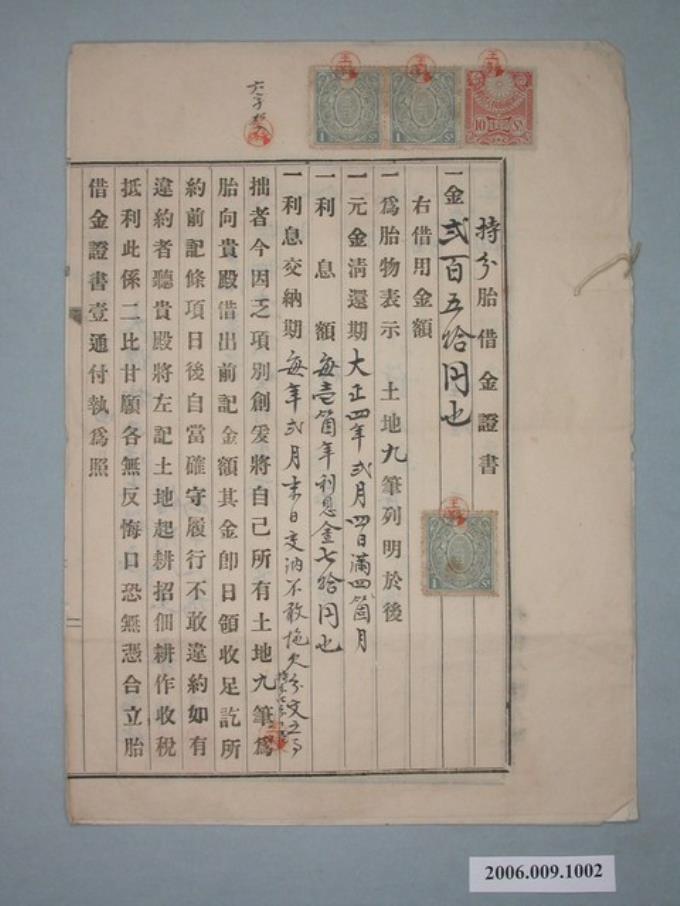 持分胎借金證書
一金貳百五拾円也
右借用金額
一爲胎物表示 土地九筆列明於後
一元金淸還期 大正四年貳月四日滿四箇月
一利息額 每壱箇年利息金七拾円也
一利息交納期 每年貳月末日交納不敢拖欠分文立
拙者今因乏項別創爰將自己所有土地九筆爲
胎向貴殿借出前記金額其金卽日領收足訖所
約前記條項日後自當確守履行不敢違約如有
違約者聽貴殿將左記土地起耕招佃耕作收稅
抵利此係二比甘願各無反悔口恐無憑合立胎
借金證書壹通付執爲照
10 Sn
1 Sn
1 Sn
1 Sn
2006.009.1002